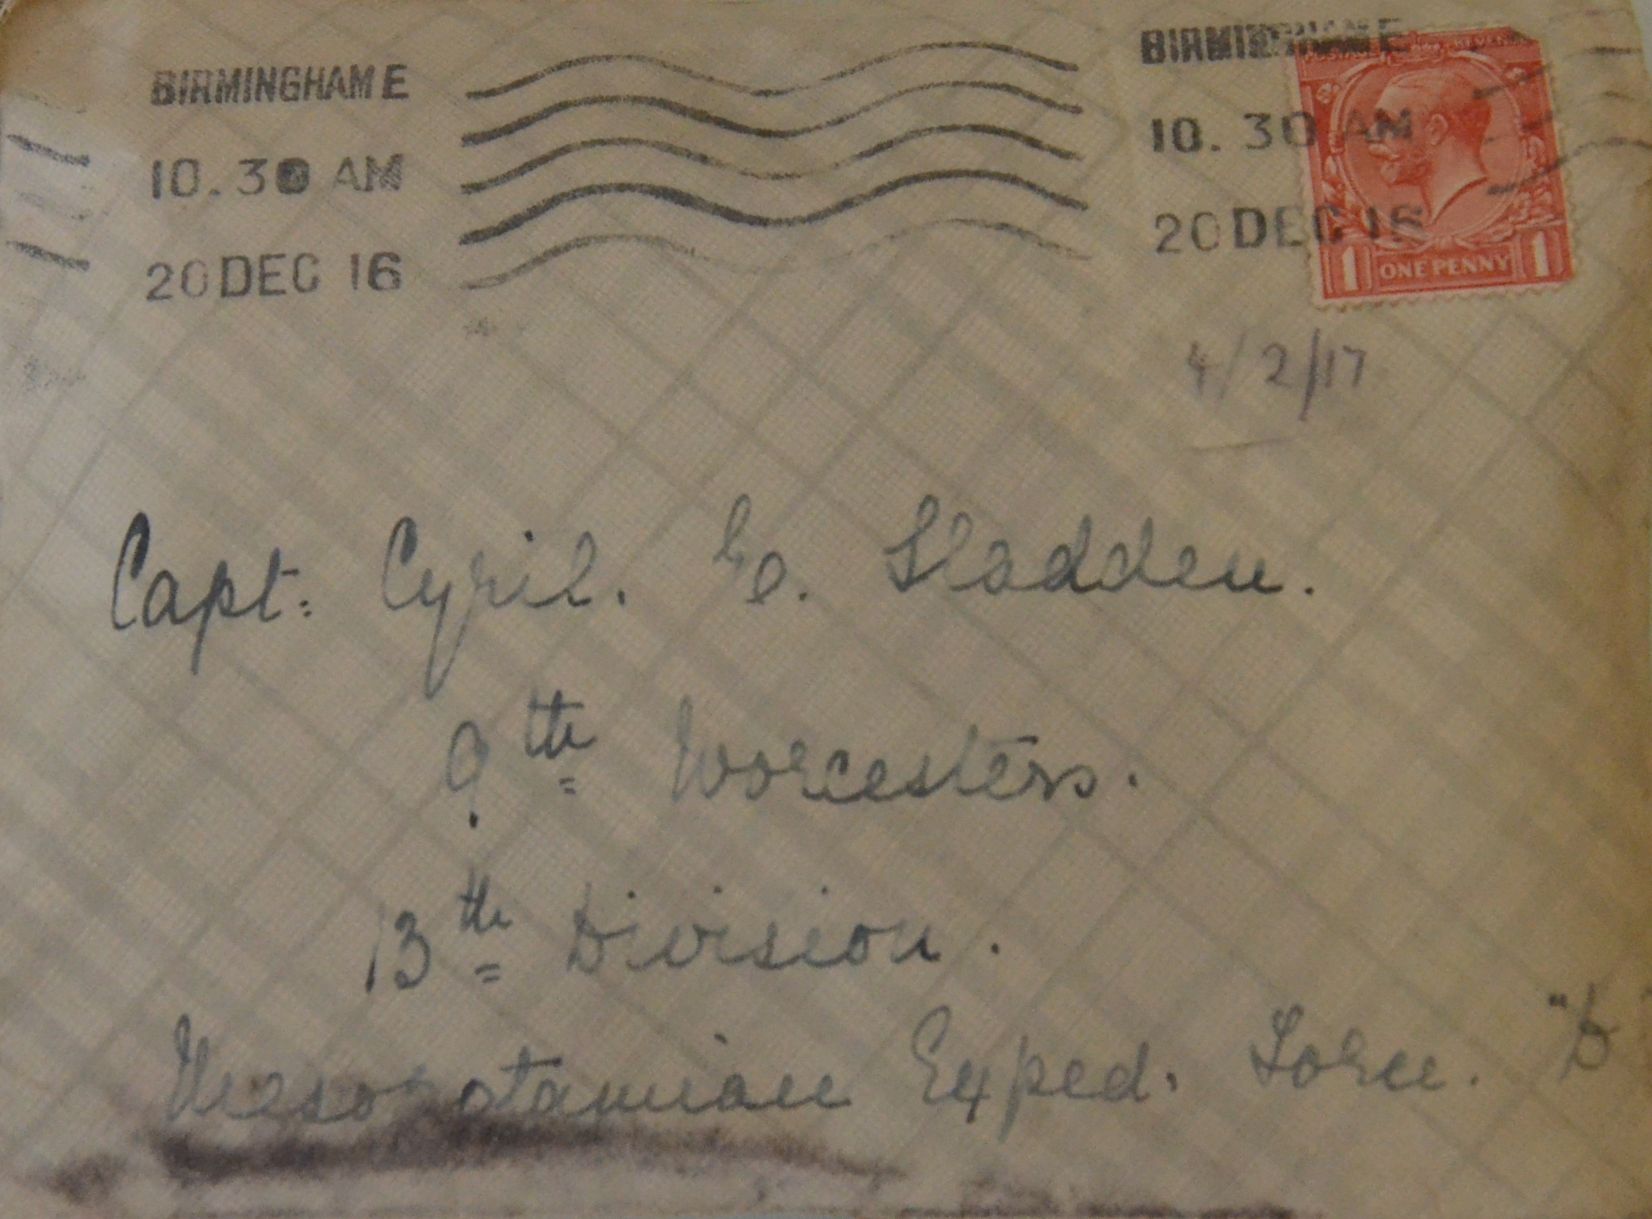 BIRMINGHAM E
10.30 AM
20 DEC 16
BIRMINGHAM E
10.30 AM
20 DEC 16
1 ONE PENNY 1
4/2/17
Capt. Cyril. E. Sladden.
9th Worcesters.
13th Division.
Mesopotamian Exped. Force. "D"